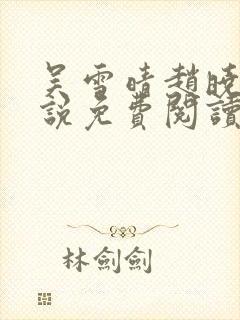 吴雪晴趙曉
說免費閱讀
林劍劍